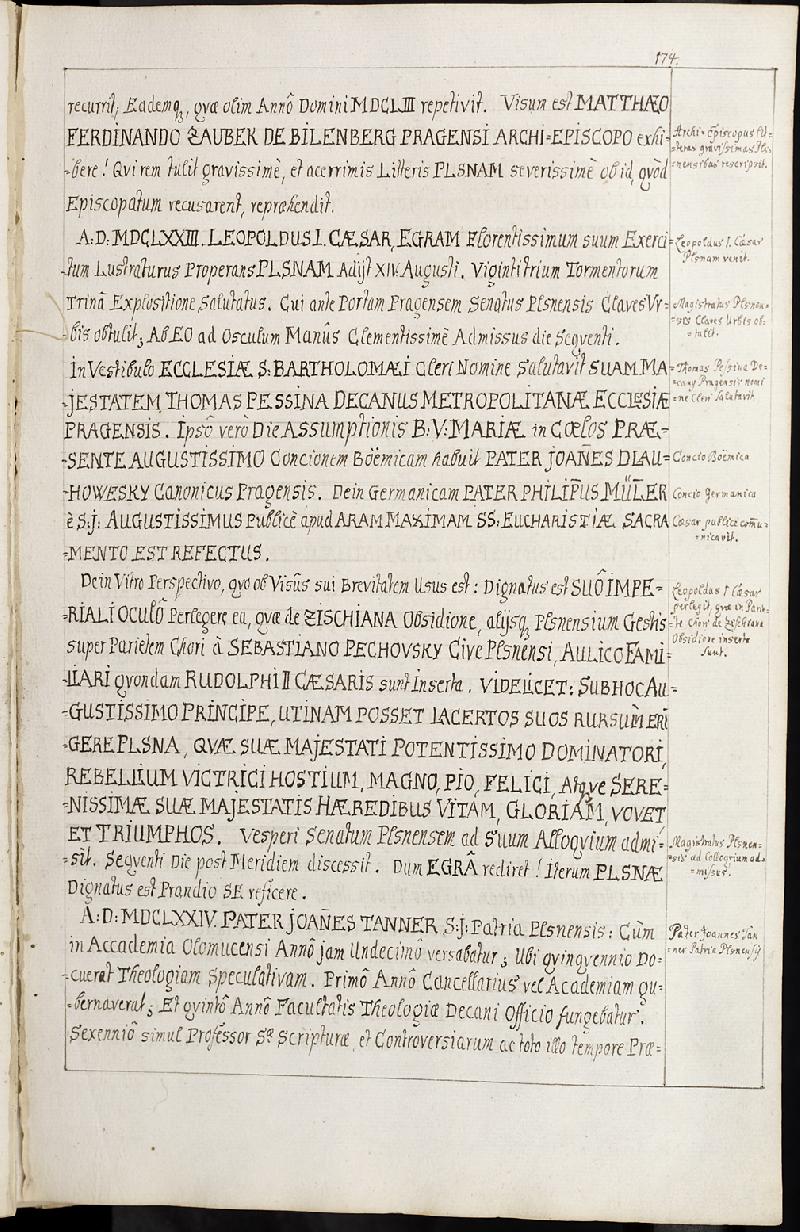 174.
recurrit; Eademq₃, qvæ olim Annô Domini MDCLIII repetivit. Visum est MATTHÆO
FERDINANDO ZAUBEK DE BILENBERG PRAGENSI ARCHI=EPISCOPO exhi=
=bere! Qvi rem tulit gravissimè, et acerrimis Litteris PLSNAM severissimè ob id, qvòd
Episcopatum recusarent, reprehendit.
Archi=Episcopus Lit=
=teras gravissimas Pls=
=nensibus rescripsit.
A: D: MDCLXXIII. LEOPOLDUS I. CÆSAR, EGRAM Florentissimum suum Exerci=
tum Lustraturus Properans PLSNAM Adijt XIV. Augusti. Viginti trium Tormentorum
Trinâ Explositione Salutatus. Cui ante Portam Pragensem Senatus Plsnensis Claves Ur=
=bis obtulit; Ab EO ad Osculum Manûs Clementissimè Admissus die Seqventi.
Leopoldus I. Cæsar
Plsnam venit.
Magistratus Plsnen=
=sis Claves Urbis ob=
=tulit.
In Vestibulo ECCLESIÆ S: BARTHOLOMÆI Cleri Nomine Salutavit SUAM MA=
=JESTATEM, THOMAS PESSINA DECANUS METROPOLITANÆ ECCLESIÆ
PRAGENSIS. Ipsô verò Die ASSumptionis B: V: MARIÆ in Cœlos PRÆ=
=SENTE AUGUSTISSIMO Concionem Böemicam habuit PATER JOANES DLAU=
=HOWESKY Canonicus Pragensis. Dein Germanicam PATER PHILIPUS MÜLER
è S: J: AUGUSTISSIMUS Publicè apud ARAM MAXIMAM SS: EUCHARISTIÆ SACRA
=MENTO EST REFECTUS.
Thomas Pessina De=
=cany Pragensis nomi
=ne Cleri Salutavit.
Concio Böemica
Concio Germanica
Cæsar publicè comu=
=nicavit.
Dein Vitro Perspectivo, qvo ob Visûs sui Brevitatem Usus est: Dignatus est SUÔ IMPE=
=RIALI OCULÔ Perlegere ea, qvæ de ZISCHIANA Obsidione, alijsq₃ Plsnensium Gestis
super Parietem Chori à SEBASTIANO PECHOVSKY Cive Plsnensi, AULICO FAMI
=LIARI qvondam RUDOLPHI II CÆSARIS sunt Inserta. VIDELICET: SUB HOC AU=
=GUSTISSIMO PRINCIPE, UTINAM POSSET LACERTOS SUOS RURSUM ERI
GERE PLSNA, QVÆ SUÆ MAJESTATI POTENTISSIMO DOMINATORI,
REBELLIUM VICTRICI HOSTIUM, MAGNO, PIO, FELICI, Atqve SERE=
=NISSIMÆ SUÆ MAJESTATIS HÆREDIBUS VITAM, GLORIAM, VOVET
ET TRIUMPHOS. Vesperi Senatum Plsnensem ad Suum Alloqvium admi=
=sit. Seqventi Die post Meridiem discessit. Dum EGRÂ rediret! Iterum PLSNÆ
Dignatus est Prandio SE reficere.
Leopoldus I Cæsar
perlegit, qvæ in Parie=
=te Chori de
Obsidione inserta
sunt.
Magistratus Plsnen=
=sis ad Colloqvium ad=
=missus.
A: D: MDCLXXIV. PATER JOANES TANNER S: J: Patria Plsnensis: Cùm
in Accademia Olomucensi Annô jam Undecimô versabatur; Ubi qvinqvennio Do=
=cuerat Theologiam Speculativam. Primô Annô Cancellarius vel Academiam gu=
=bernaverat; Et qvintô Annô Facultatis Theologiæ Decani Officio fungebatur.
Sexenniô simul Professor Sæ Scripturæ, et Controversiarum ac toto illo tempore Præ=
Pater Joannes Tan
ner Patriâ Plsnensis